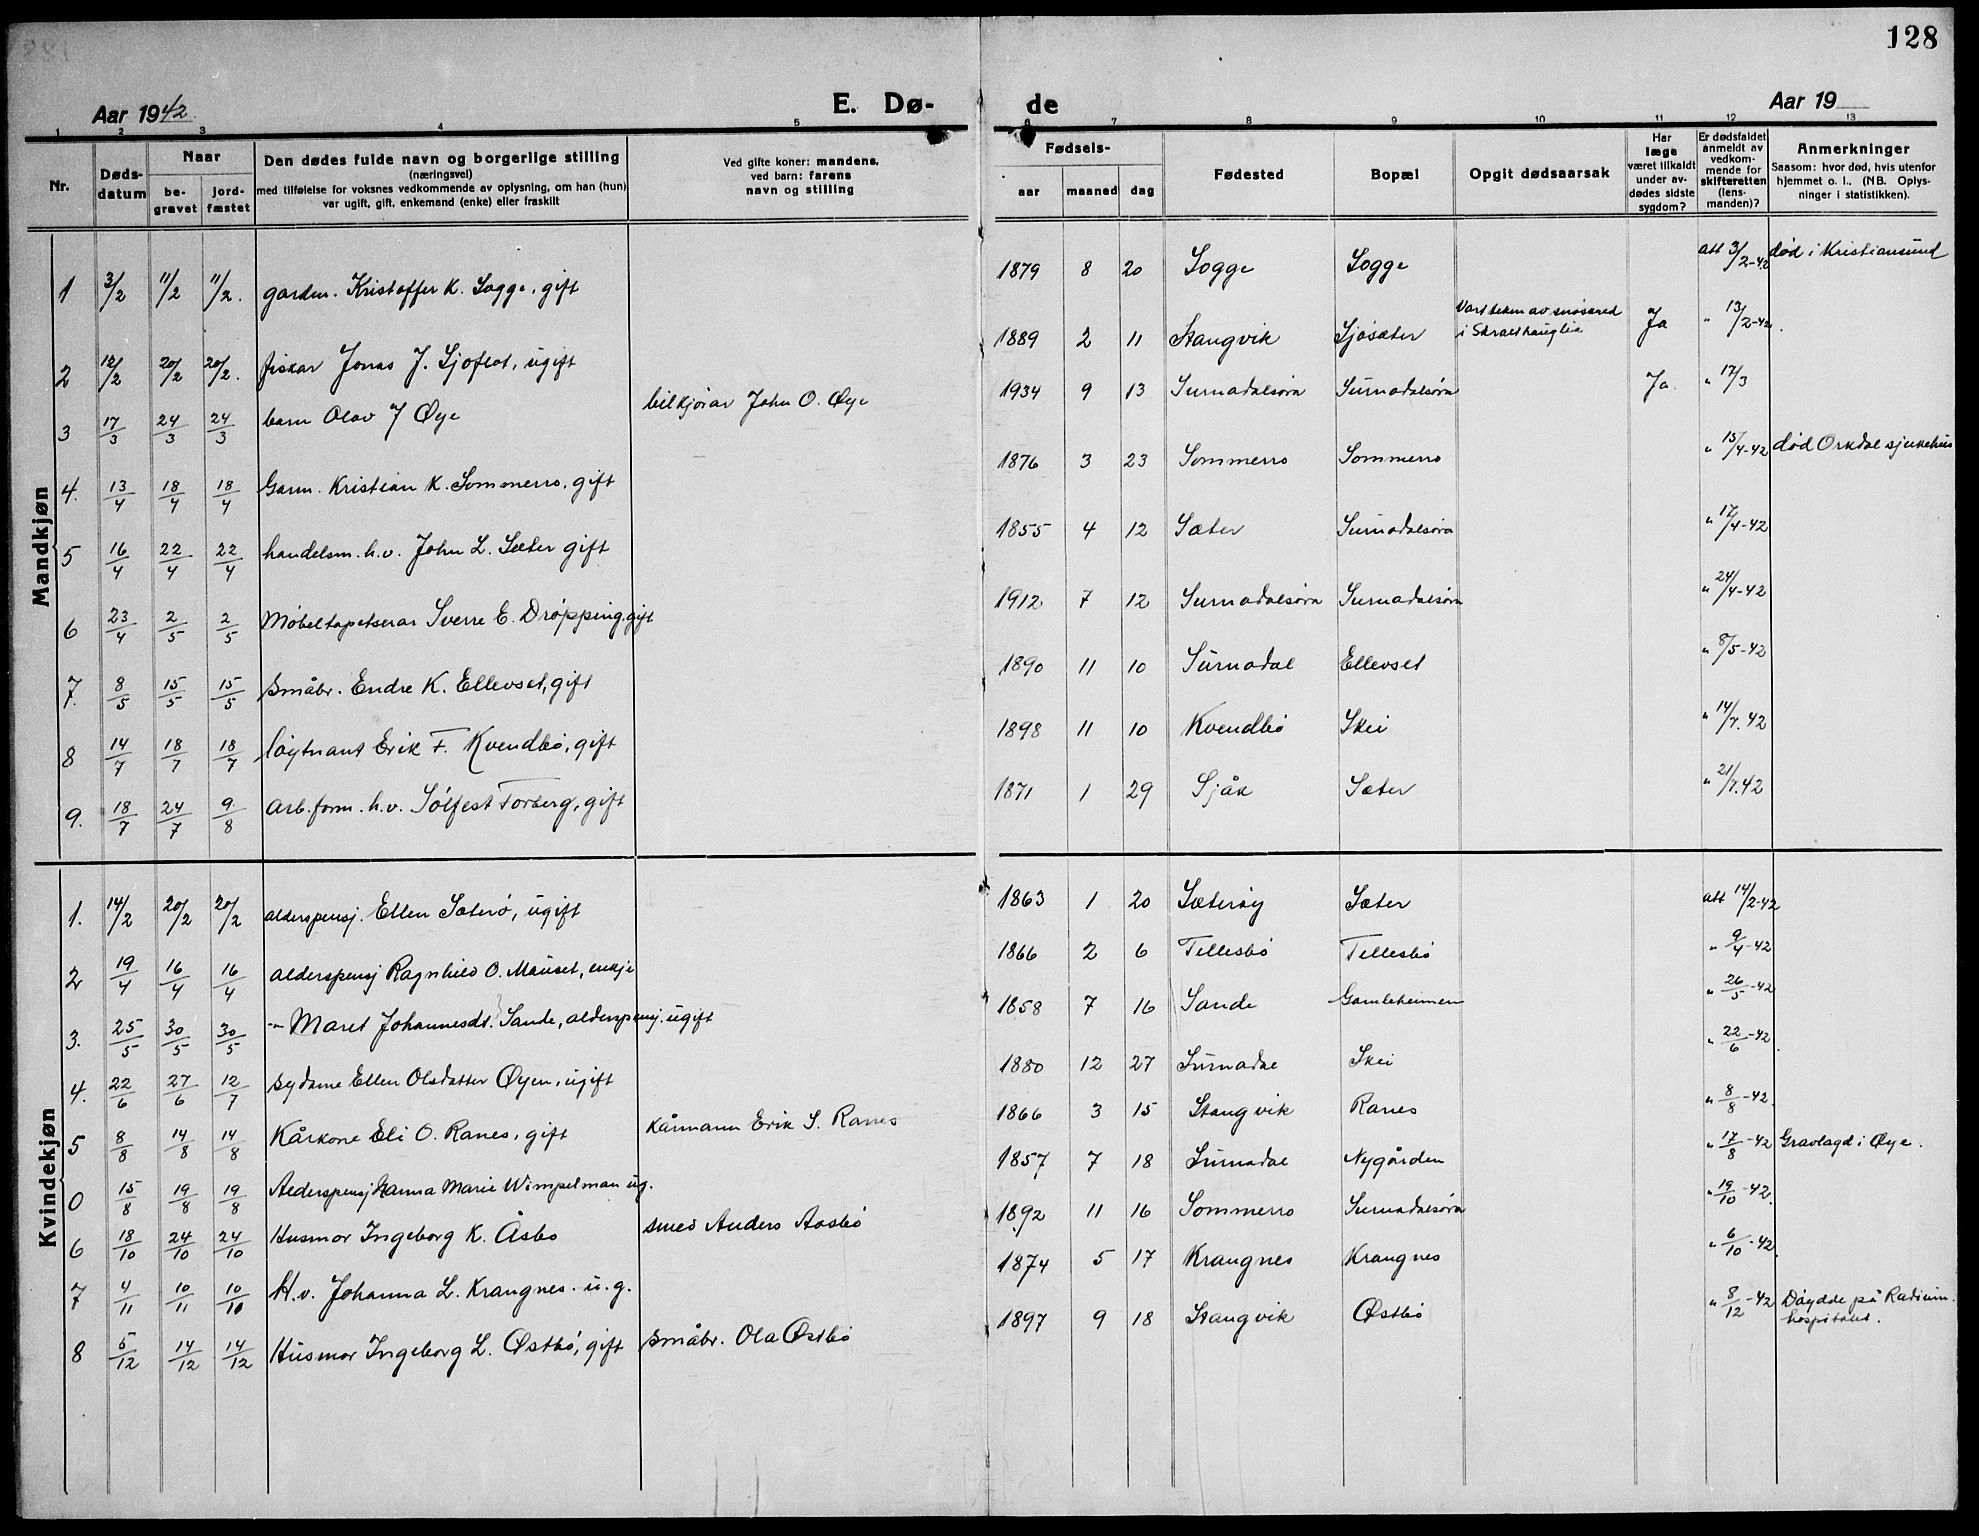 128
Aar 1942 E. Dø- de Aar 19
1 2 3 4 5 6 7 8 9 10 11 12 13
Nr. Døds-datum Naar be-gravet jord-fæstet Den dødes fulde navn og borgerlige stilling (næringsvei) med tilføielse for voksnes vedkommende av oplysning, om han (hun) var ugift, gift, enkemand (enke) eller fraskilt Ved gifte koner: mandens, ved barn: farens navn og stilling Fødsels- aar maaned dag Fødested Bopæl Opgit dødsaarsak Har læge været tilkaldt under av-dødes sidste sygdom? Er dødsfaldet anmeldt av vedkom-mende for skifteretten (lens-manden)? Anmerkninger Saasom: hvor død, hvis utenfor hjemmet o. l.. (NB. Oplys-ninger i statistikken).
Mandkjøn
1 3/2 11/2 11/2. gardm. Kristoffer K. Sogge, gift 1879 8 20 Sogge Sogge att 3/2-42 død i Kristiansund
2 12/2 20/2 20/2. fiskar Jonas J. Sjoflot, ugift 1889 2 11 Stangvik Sjøsæter Vart teken av snøskred i Ja " 13/2-42.
3 17/3 24/3 24/3 barn Olav J Øye bilkjørar John O. Øye 1934 9 13 Surnadalsøra Surnadalsøra Ja. " 17/3
4. 13/4 18/4 18/4 Garm. Kristian K. Sommerro, gift 1876 3 23 Sommerro Sommerro " 15/4-42 død Orkdal sjukehus
5 16/4 22/4 22/4 handelsm. h.v. John L. Sæter gift 1855 4 12 Sæter Surnadalsøra " 17/4-42
6 23/4 2/5 2/5 Møbeltapetserar Sverre E. Drøpping, gift 1912 7 12 Surnadalsøra Surnadalsøra " 24/4-42
7. 8/5 15/5 15/5 småbr. Endre K. Ellevset, gift 1890 11 10 Surnadal Ellevset " 8/5-42
8 14/7 18/7 18/7 løytnant Erik F. Kvendbø, gift 1898 11 10 Kvendbø Skei " 14/7.42
9. 18/7 24/7 9/8 arb.form. h.v. Sølfest Torberg, gift 1871 1 29 Sjåk Sæter " 21/7.42
Kvindekjøn
1. 14/2 20/2 20/2 alderspensj. Ellen Sæterø, ugift 1863 1 20 Sæterøy Sæter att 14/2-42
2 19/4 16/4 16/4 alderspensj Ragnhild O. Mauset, enkje 1866 2 6 Tellesbø Tellesbø " 9/4-42
3. 25/5 30/5 30/5 -"- Maret Johannesdt. Sande, alderspensj. ugift 1858 7 16 Sande Gamleheimen " 26/5-42
4. 22/6 27/6 12/7 sydame Ellen Olsdatter Øyen, ugift 1880 12 27 Surnadal Skei " 22/6-42.
5 8/8 14/8 14/8 Kårkone Eli O. Ranes, gift kårmann Erik S. Ranes 1866 3 15 Stangvik Ranes " 8/8-42.
0 15/8 19/8 19/8 Alderspensj Hanna Marie Wimpelman ug. 1857 7 18 Surnadal Nygården " 17/8-42 Gravlagd i Øye.
6 18/10 24/10 24/10 Husmor Ingeborg K. Åsbø smed Anders Aasbø 1892 11 16 Sommerro Surnadalsøra " 19/10-42.
7 4/11 10/11 10/10 H.v. Johanna L. Krangnes. u.g. 1874 5 17 Krangnes Krangnes " 6/10-42.
8 5/12 14/12 14/12 Husmor Ingeborg L. Østbø, gift småbr. Ola Østbø 1897 9 18 Stangvik Østbø " 8/12-42 Døydde på Radium-hospitalet.